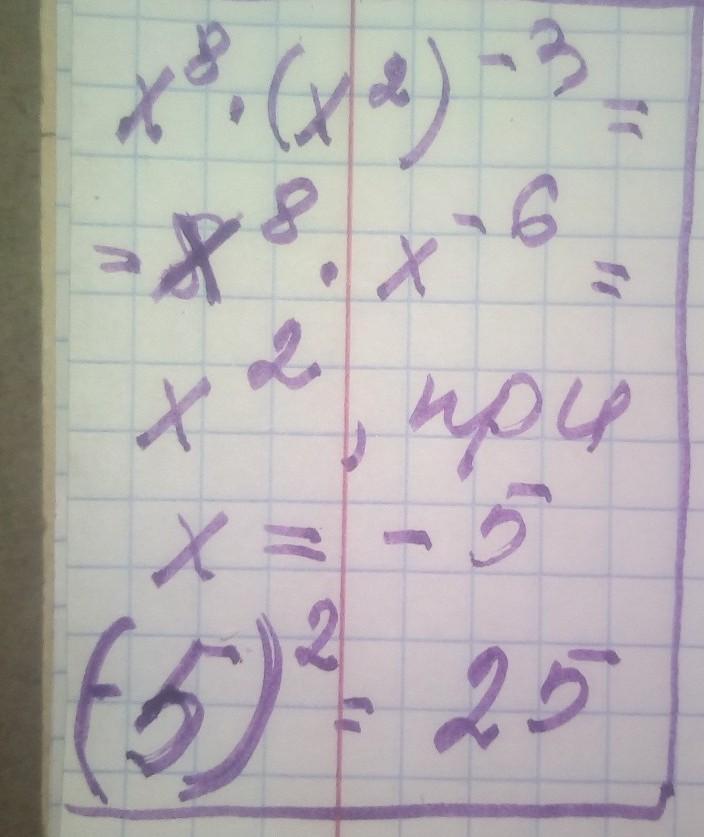 x⁸ · (x²)⁻³ =
= x⁸ · x⁻⁶ =
x², при
x = - 5
(-5)² = 25